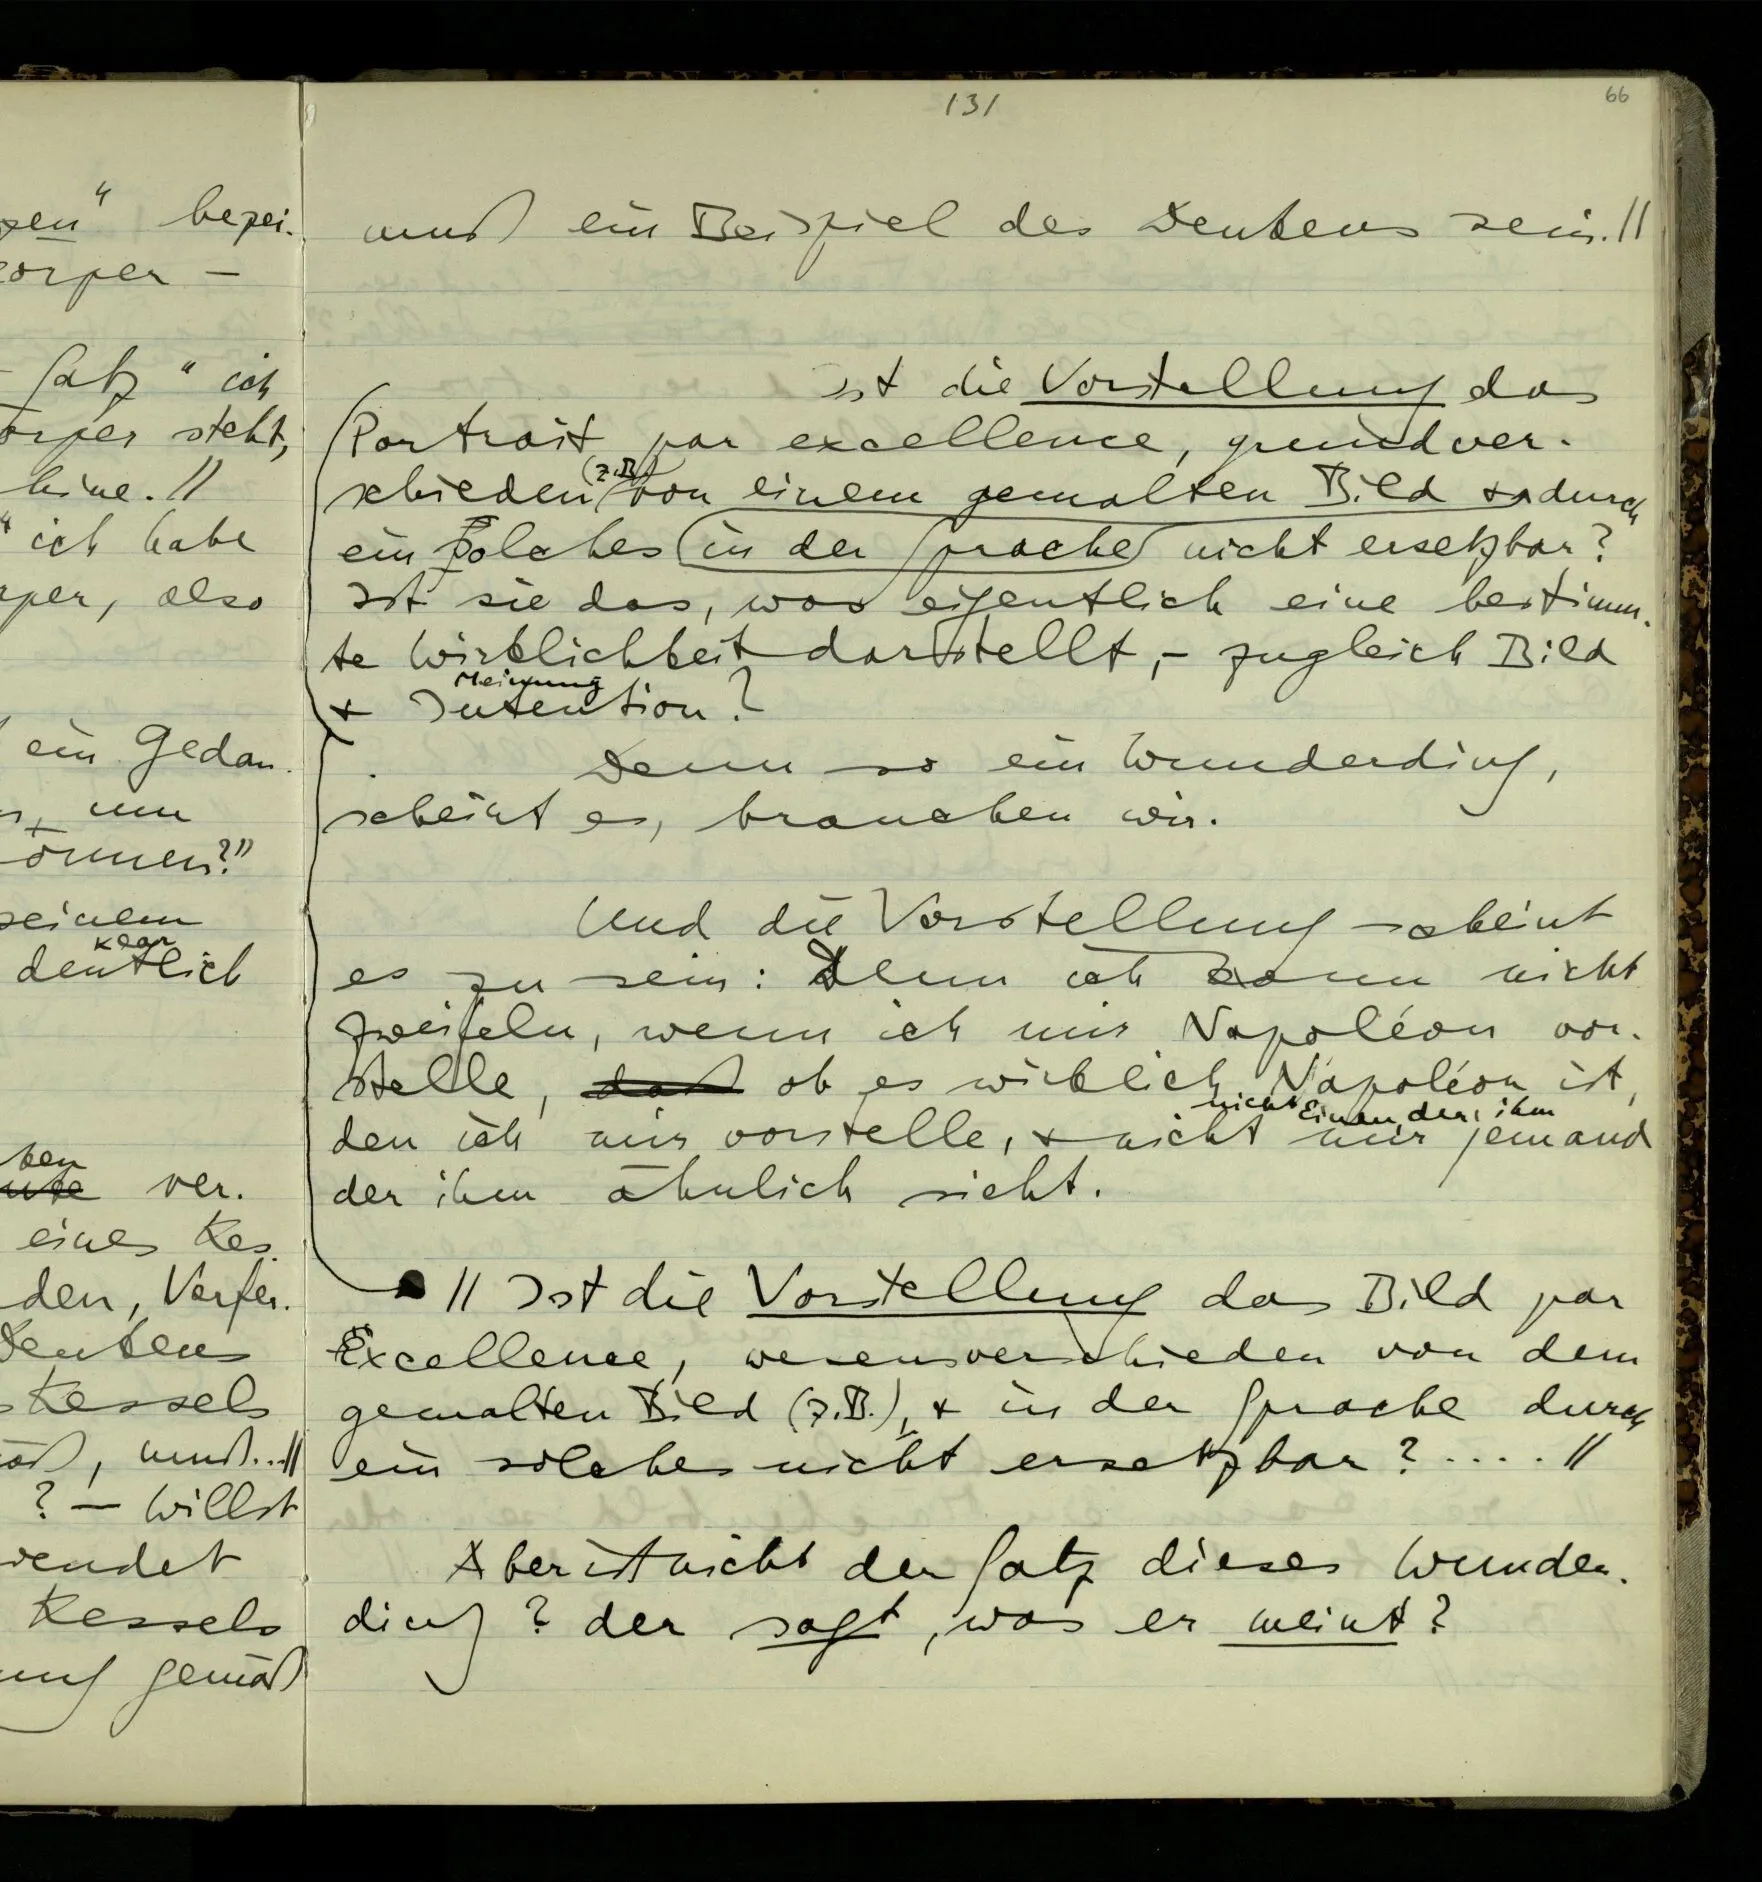 131
66
muß ein Beispiel des Denkens sein.||
Ist die Vorstellung das
Portrait par excellence, grundver-
schieden (z.B.) von einem gemalten Bild & durch
ein solches in der Sprache nicht ersetzbar?
Ist sie das, was eigentlich eine bestimm-
te Wirklichkeit darstellt, – zugleich Bild
Meinung
& Intention?
Denn so ein Wunderding,
scheint es, brauchen wir.
Und die Vorstellung scheint
es zu sein: Denn ich kann nicht
zweifeln, wenn ich mir Napoléon vor-
stelle, daß ob es wirklich Napoléon ist,
nicht Einen, der ihm
den ich mir vorstelle, & nicht nur jemand
der ihm ähnlich sieht.
|| Ist die Vorstellung das Bild par
Excellence, wesensverschieden von dem
gemalten Bild (z.B.), & in der Sprache durch
ein solches nicht ersetzbar? .... ||
Aber ist nicht der Satz dieses Wunder-
ding? der sagt, was er meint?
zen" bezei-
körper –
Satz "ich
körper steht,
"ich habe
also
ein Gedan-
um
können?"
seinem
klar
deutlich
ben
ver-
eines Kes-
den, Verfer-
Denkens
Kessels
muß..||
? – Willst
wendet
Kessels
gemäß